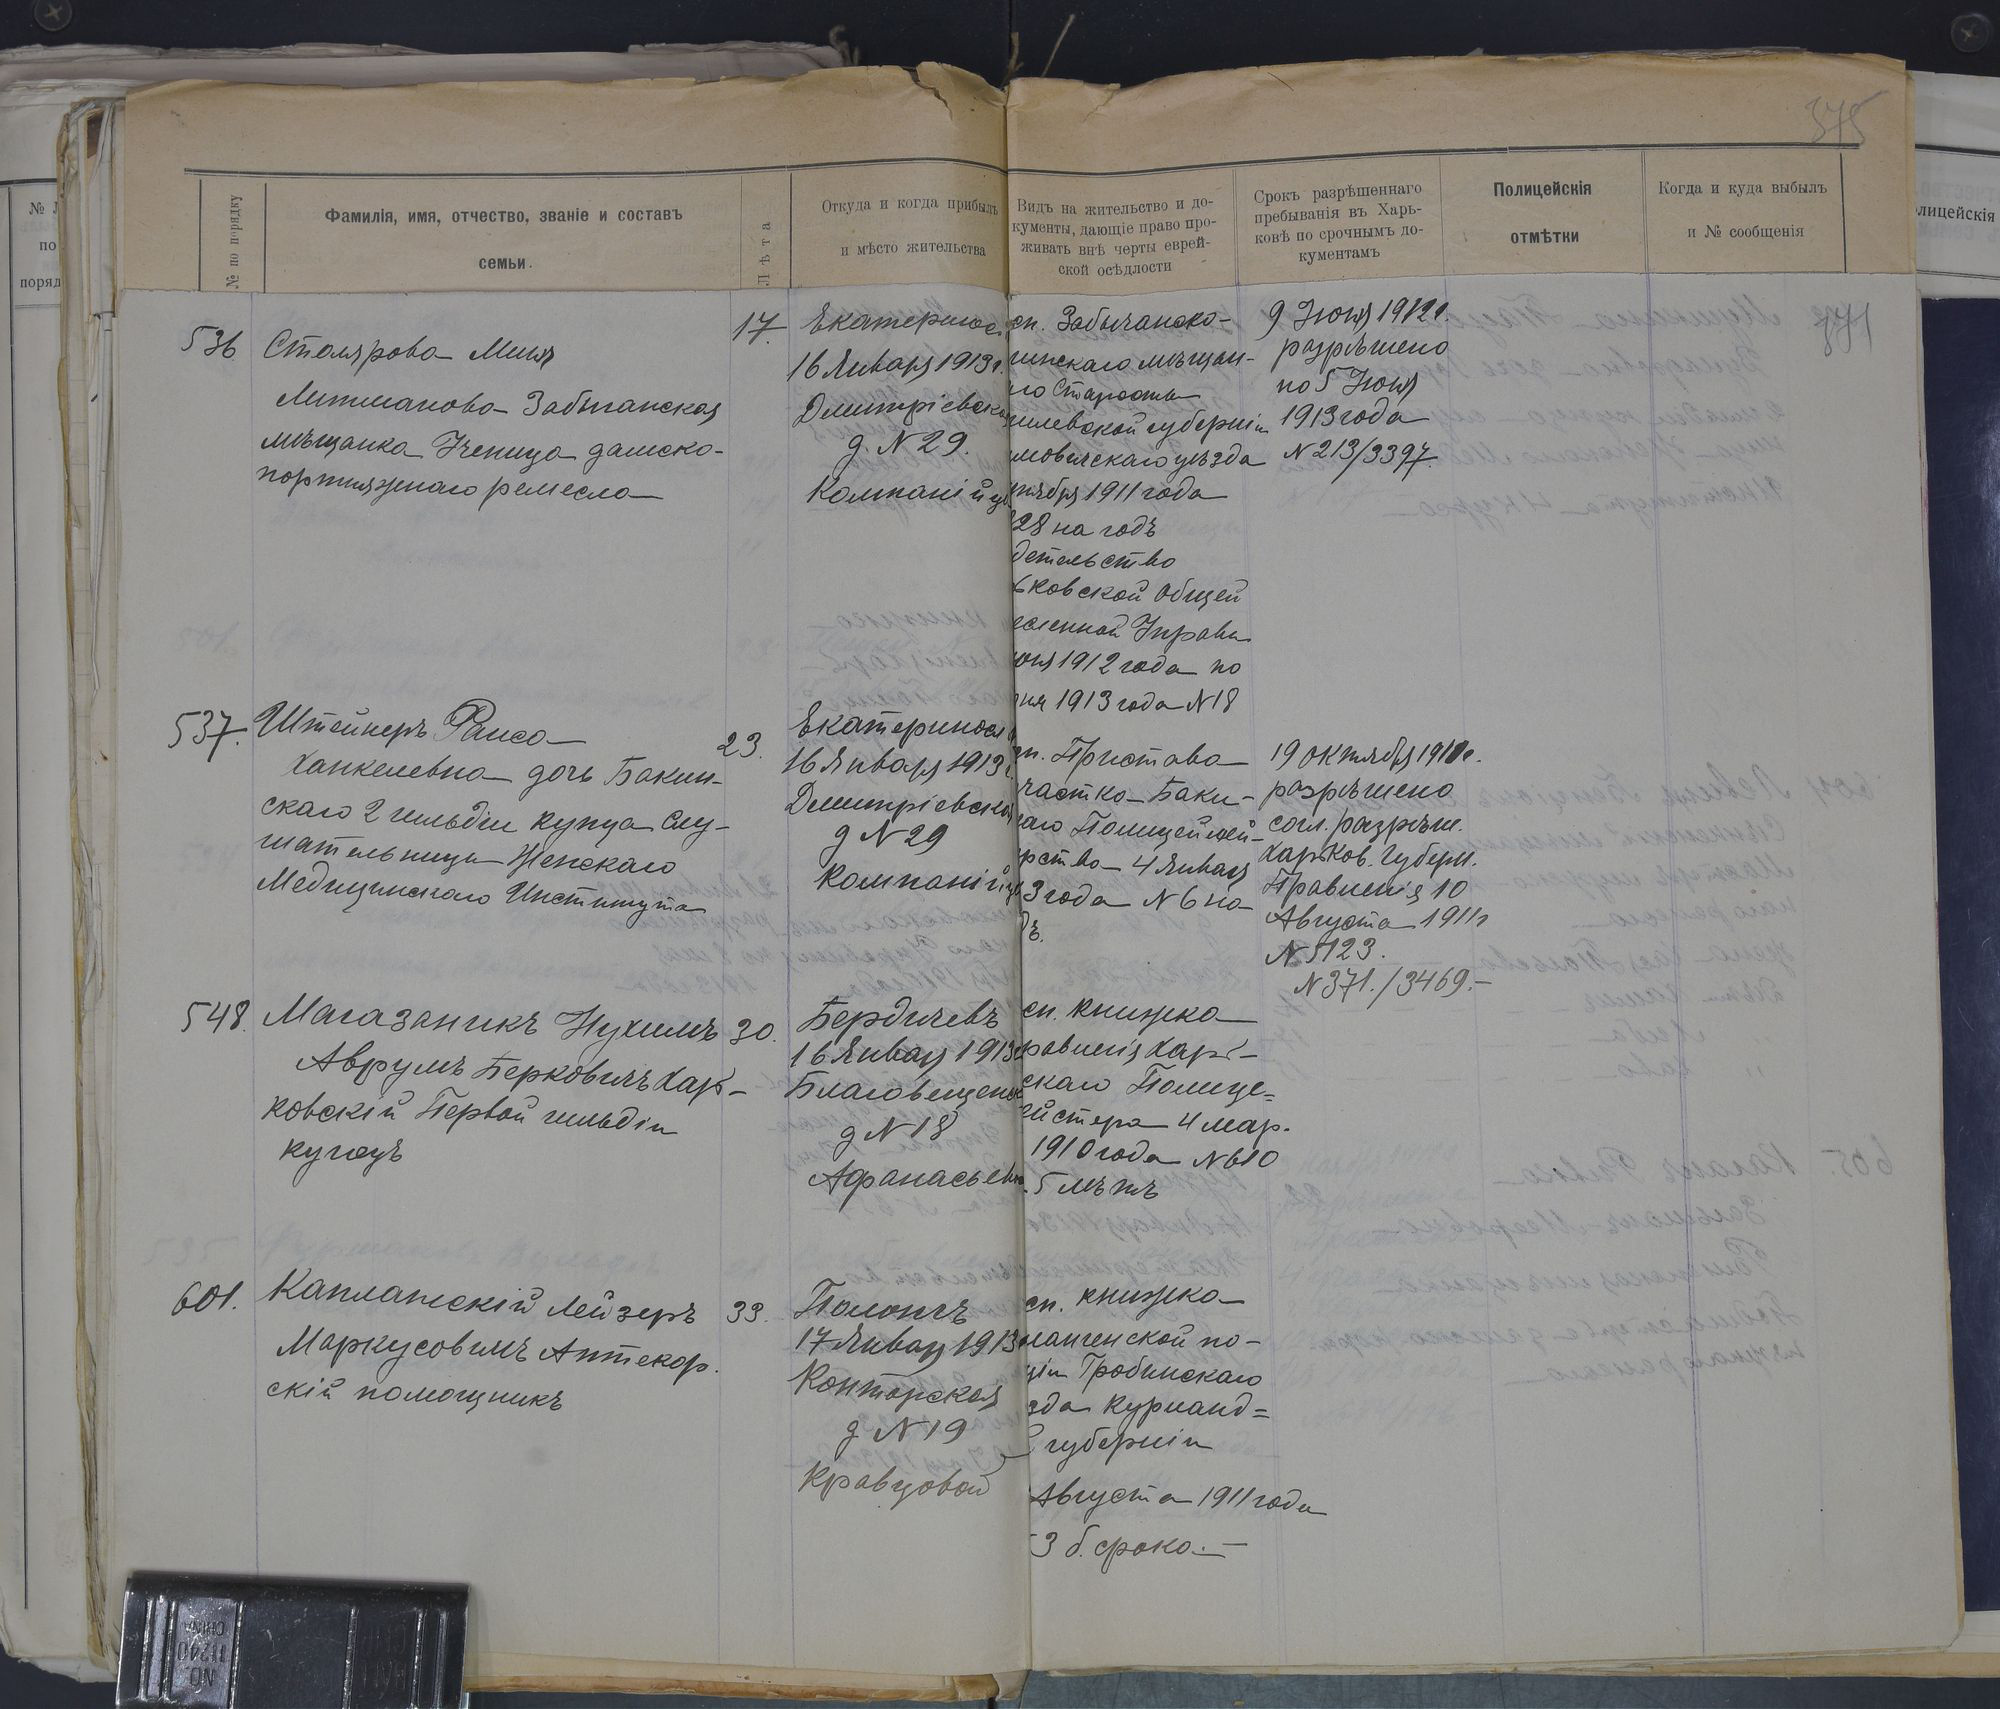 375
№ по порядку
Фамилія, имя, отчество, званіе и составъ
семьи.
Лѣта
Откуда и когда прибылъ
и мѣсто жительства
Видъ на жительство и до-
кументы, дающіе право про-
живать внѣ черты еврей-
ской осѣдлости
Срокъ разрѣшеннаго
пребыванія въ Харь-
ковѣ по срочнымъ до-
кументамъ
Полицейскія
отмѣтки
Когда и куда выбылъ
и № сообщенія
536
Столярова Миня
Литманова Забычанская
мѣщанка Ученица дамско-
портняжнаго ремесла
17.
Екатериносл
16 Января 1913 г.
Дмитріевска
д. № 29.
Компаній
сп. Забычанско-
инскаго мѣщан-
го Старосты
илевской губерніи
имовичскаго уѣзда
нтября 1911 года
28 на годъ
дѣтельство
ковской Общей
есленной Управы
юня 1912 года по
ня 1913 года № 18
9 Іюня 1912 г.
разрѣшено
по 5 Іюня
1913 года
№ 213/3397.
537.
Штейнеръ Раиса
Ханкелевна дочь Бакин-
скаго 2 гильдіи купца Слу-
шательница Женскаго
Медицинскаго Института
23.
Екатеринослав
16 Января 1913 г.
Дмитріевская
д № 29
Компаній
сп. Пристава
частка Баки-
аго Полицеймей-
рства 4 Января
3 года № 6 на
дъ.
19 октября 1911 г.
разрѣшено
согл. разрѣш.
Харьков. Губерн.
Правленія 10
Августа 1911 г
№ 5123.
№ 371./3469.-
548.
Магазаникъ Нухимъ
Аврумъ Берковичъ Харь-
ковскій Первой гильдіи
купецъ
30.
Бердичевъ
16 Января 1913
Благовѣщенск
д № 18
Афанасьева
сп. книжка
равленія Харь-
скаго Полице=
йстера 4 мар.
1910 года № 610
5 лѣтъ
601.
Капланскій Лейзеръ
Маркусовичъ Аптекар.
скій помощникъ
33.
17 Января 1913
Конторская
д № 19
Кравцовой
сп. книжка
ангенской по-
ціи Гробинскаго
зда Курлянд=
губерніи
Августа 1911 года
3 б. срока.-